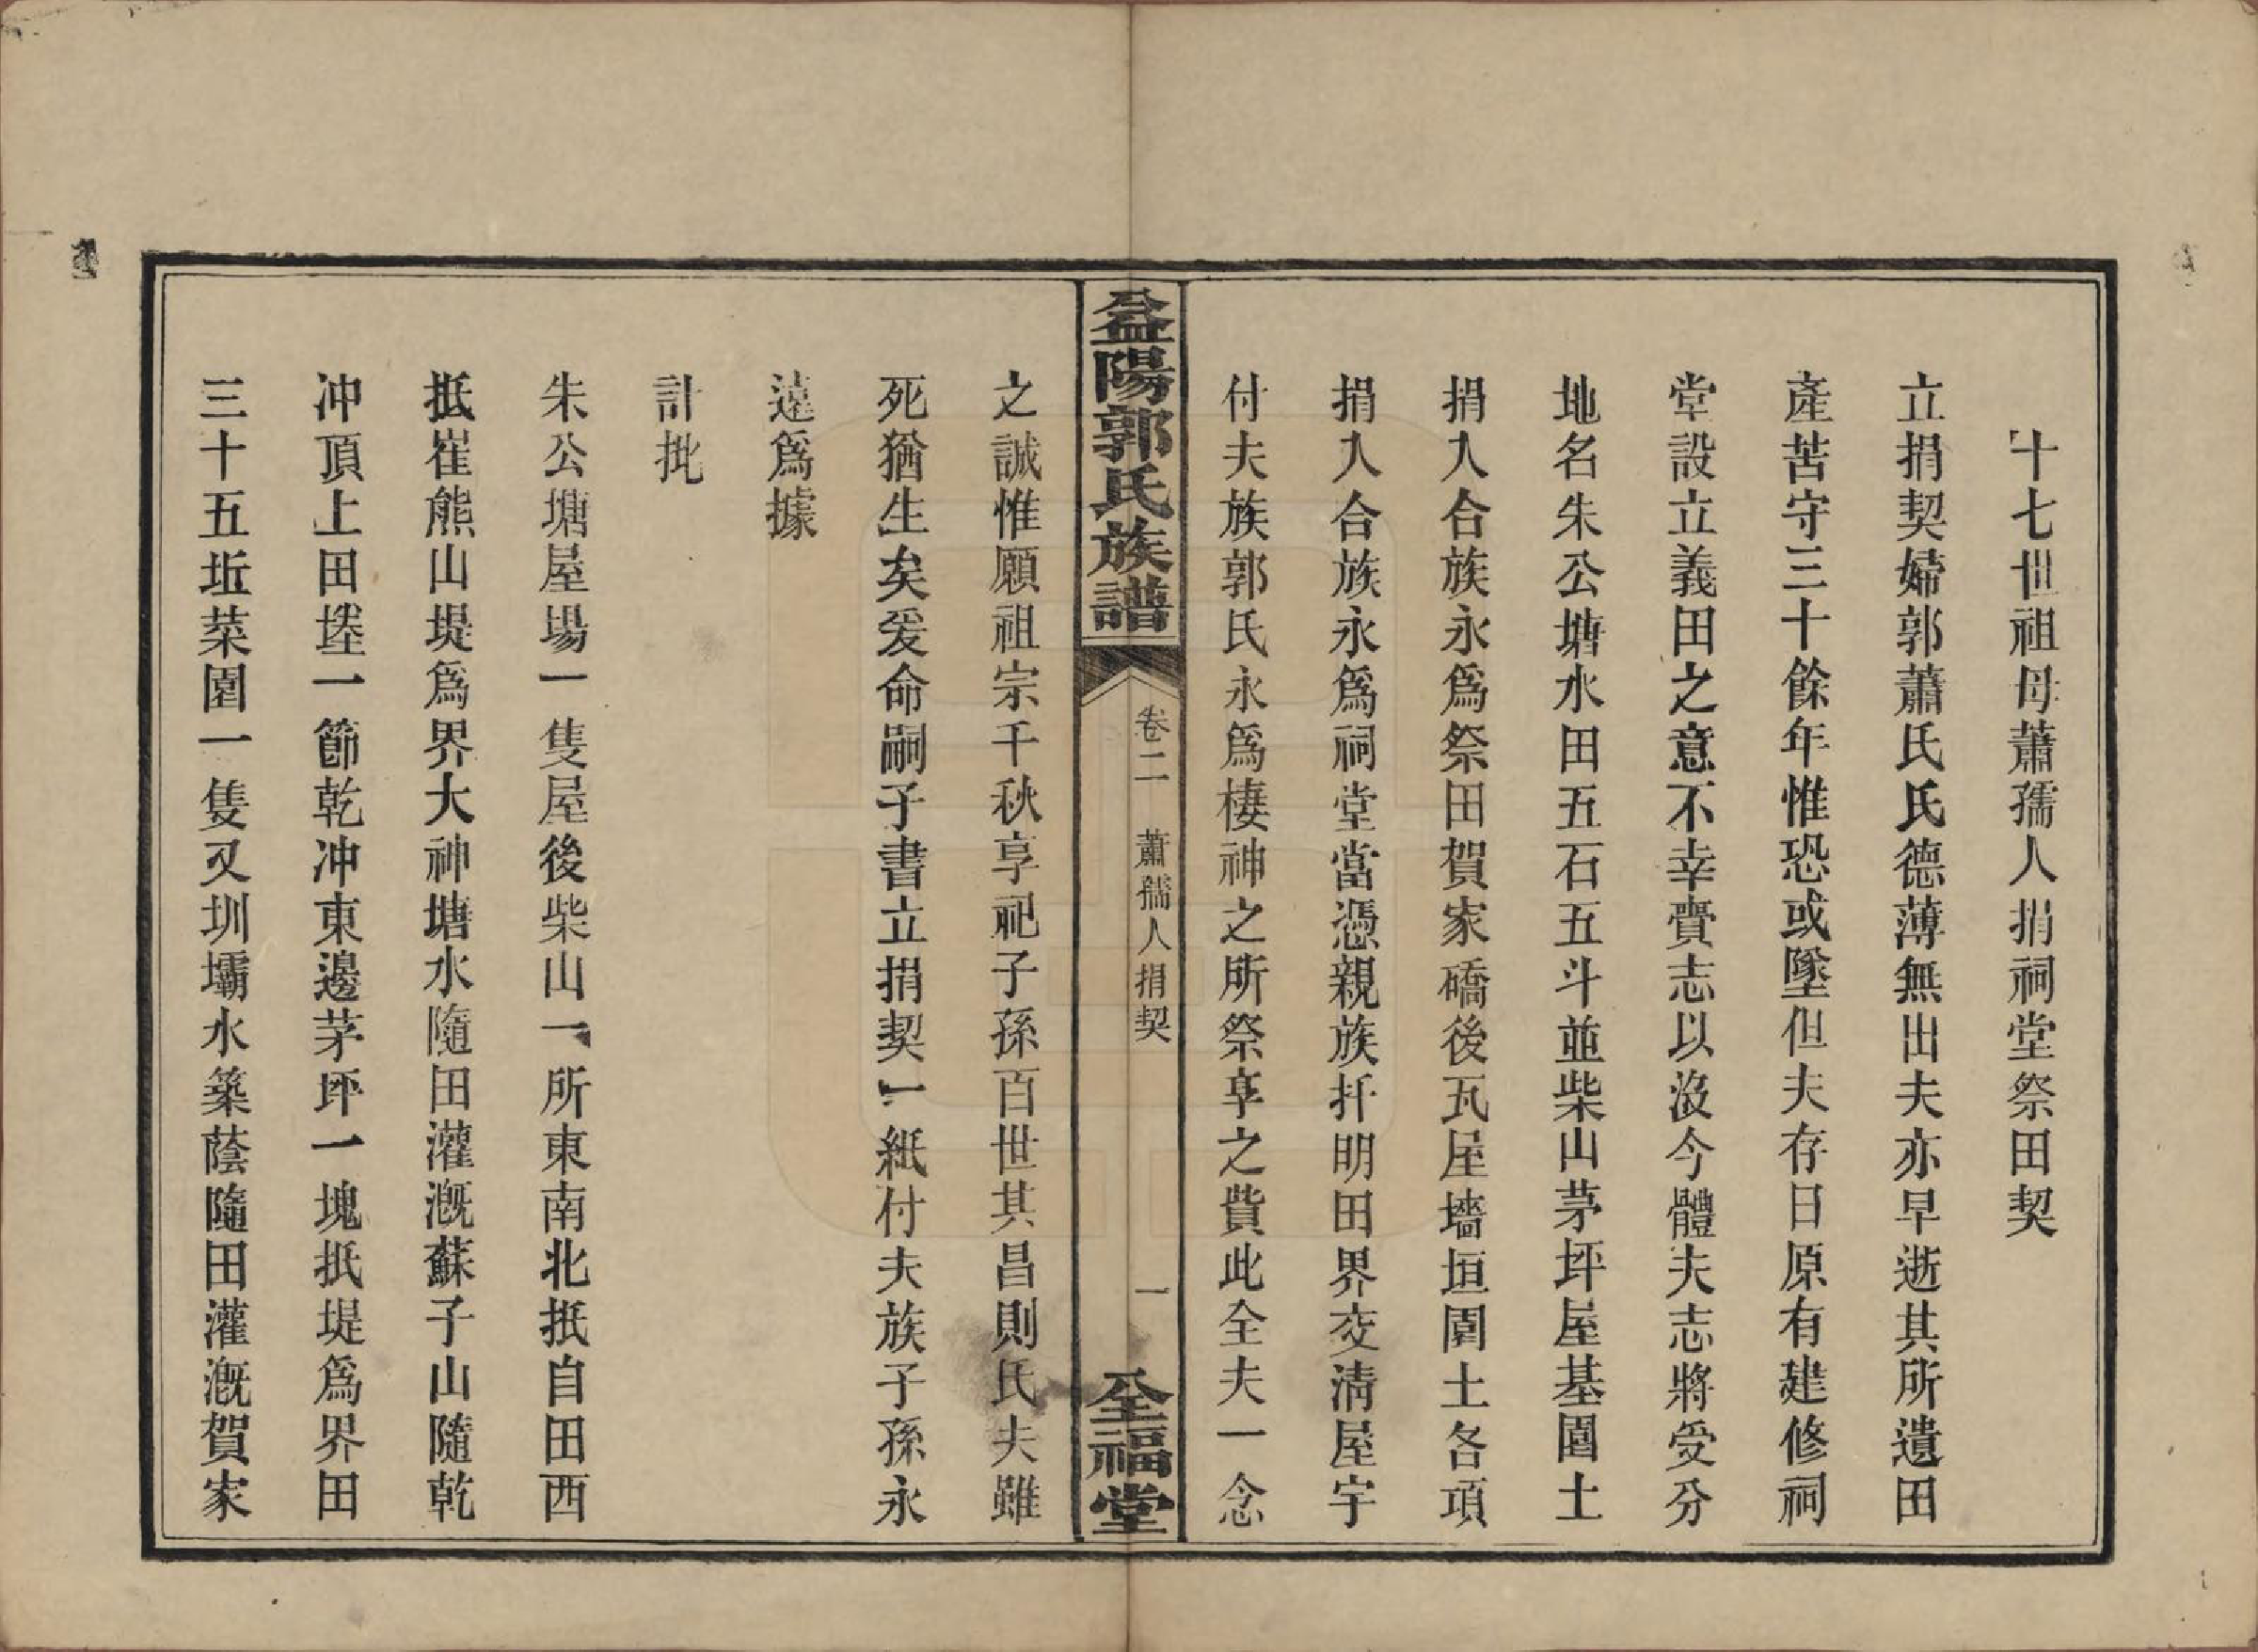 十七世祖母蕭孺人捐祠堂祭田契
立捐契婦郭蕭氏氏德薄無出夫亦早逝其所遺田
產苦守三十餘年惟恐或墜但夫存日原有建修祠
堂設立義田之意不幸賫志以沒今體夫志將受分
地名朱公塘水田五石五斗並柴山茅坪屋基園土
捐入合族永爲祭田賀家礄後瓦屋墻垣園土各項
捐入合族永爲祠堂當憑親族扦明田界交清屋宇
付夫族郭氏永爲棲神之所祭享之費此全夫一念
益陽郭氏族譜
卷二
蕭孺人捐契
一
全福堂
之誠惟願祖宗千秋享祀子孫百世其昌則氏夫雖
死猶生矣爰命嗣子書立捐契一紙付夫族子孫永
遠爲據
計批
朱公塘屋場一隻屋後柴山一所東南北抵自田西
抵崔熊山堤爲界大神塘水隨田灌溉蘇子山隨乾
冲頂上田塂一節乾冲東邊茅坪一塊抵堤爲界田
三十五坵菜園一隻又圳壩水築蔭隨田灌溉賀家